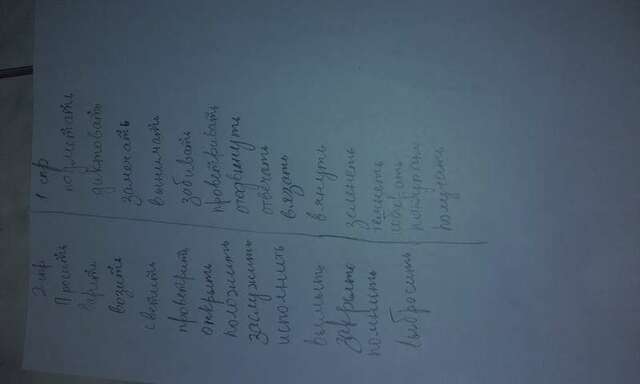 2 спр 1 спр
Просить подметать
диктовать
возить замечать
светить вынимать
проветрить забивать
открыть проветривать
положить отодвинуть
заслужить отвечать
исполнить вязать
вымыть вянуть
закрыть зеленеть
помнить темнеть
выбросить
получать